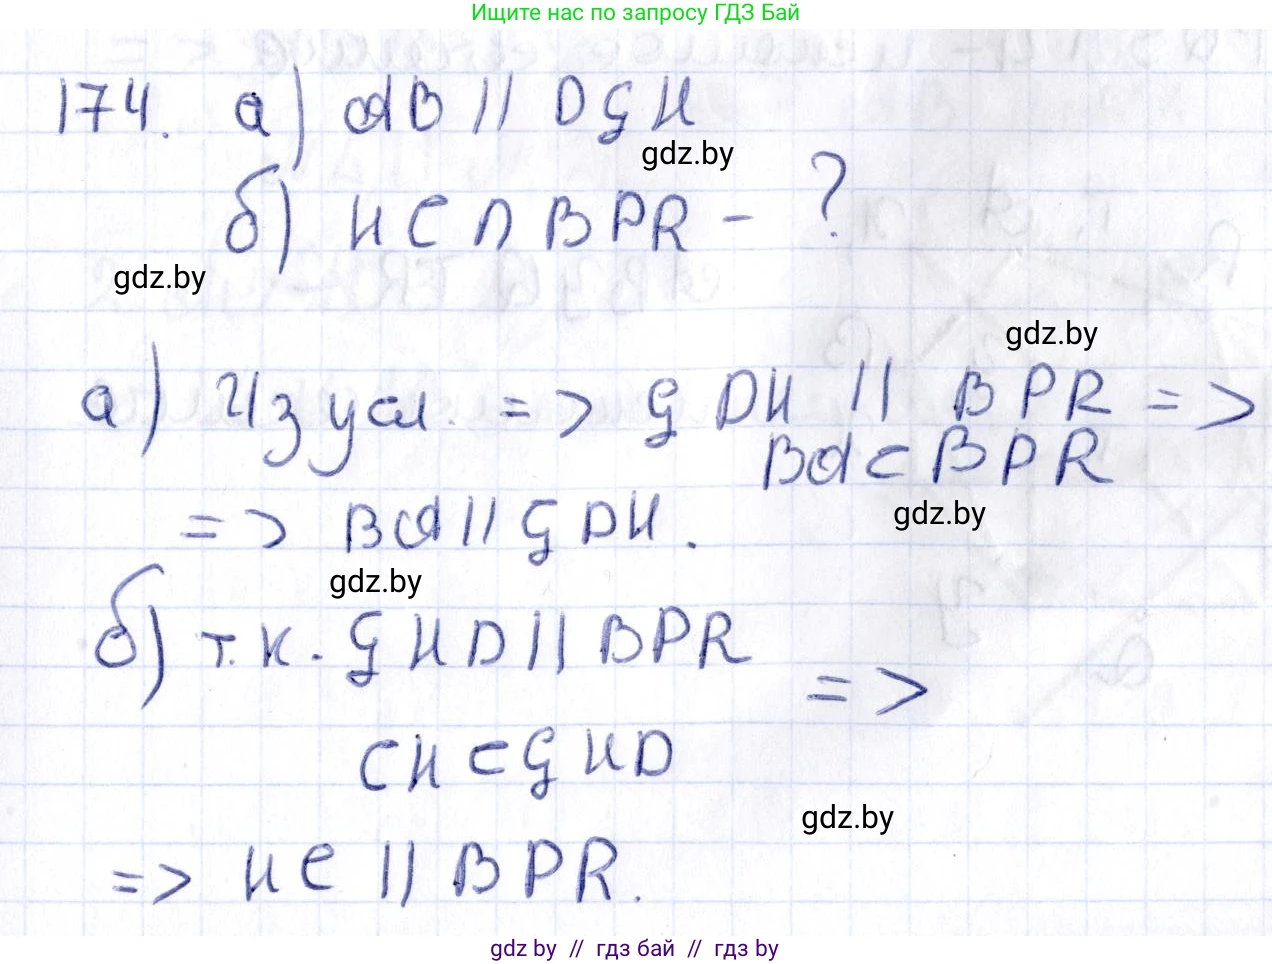 Ищите нас по запросу ГДЗ Бай
174. а) AB || DGH
gdz.by
б) HC ∩ BPR - ?
gdz.by
gdz.by
а) Из усл. => GDH || BPR =>
BA ⊂ BPR
=> BA || GDH.
gdz.by
gdz.by
б) т.к. GHD || BPR
=>
CH ⊂ GHD
gdz.by
=> HC || BPR.
gdz by // гдз бай // гдз by